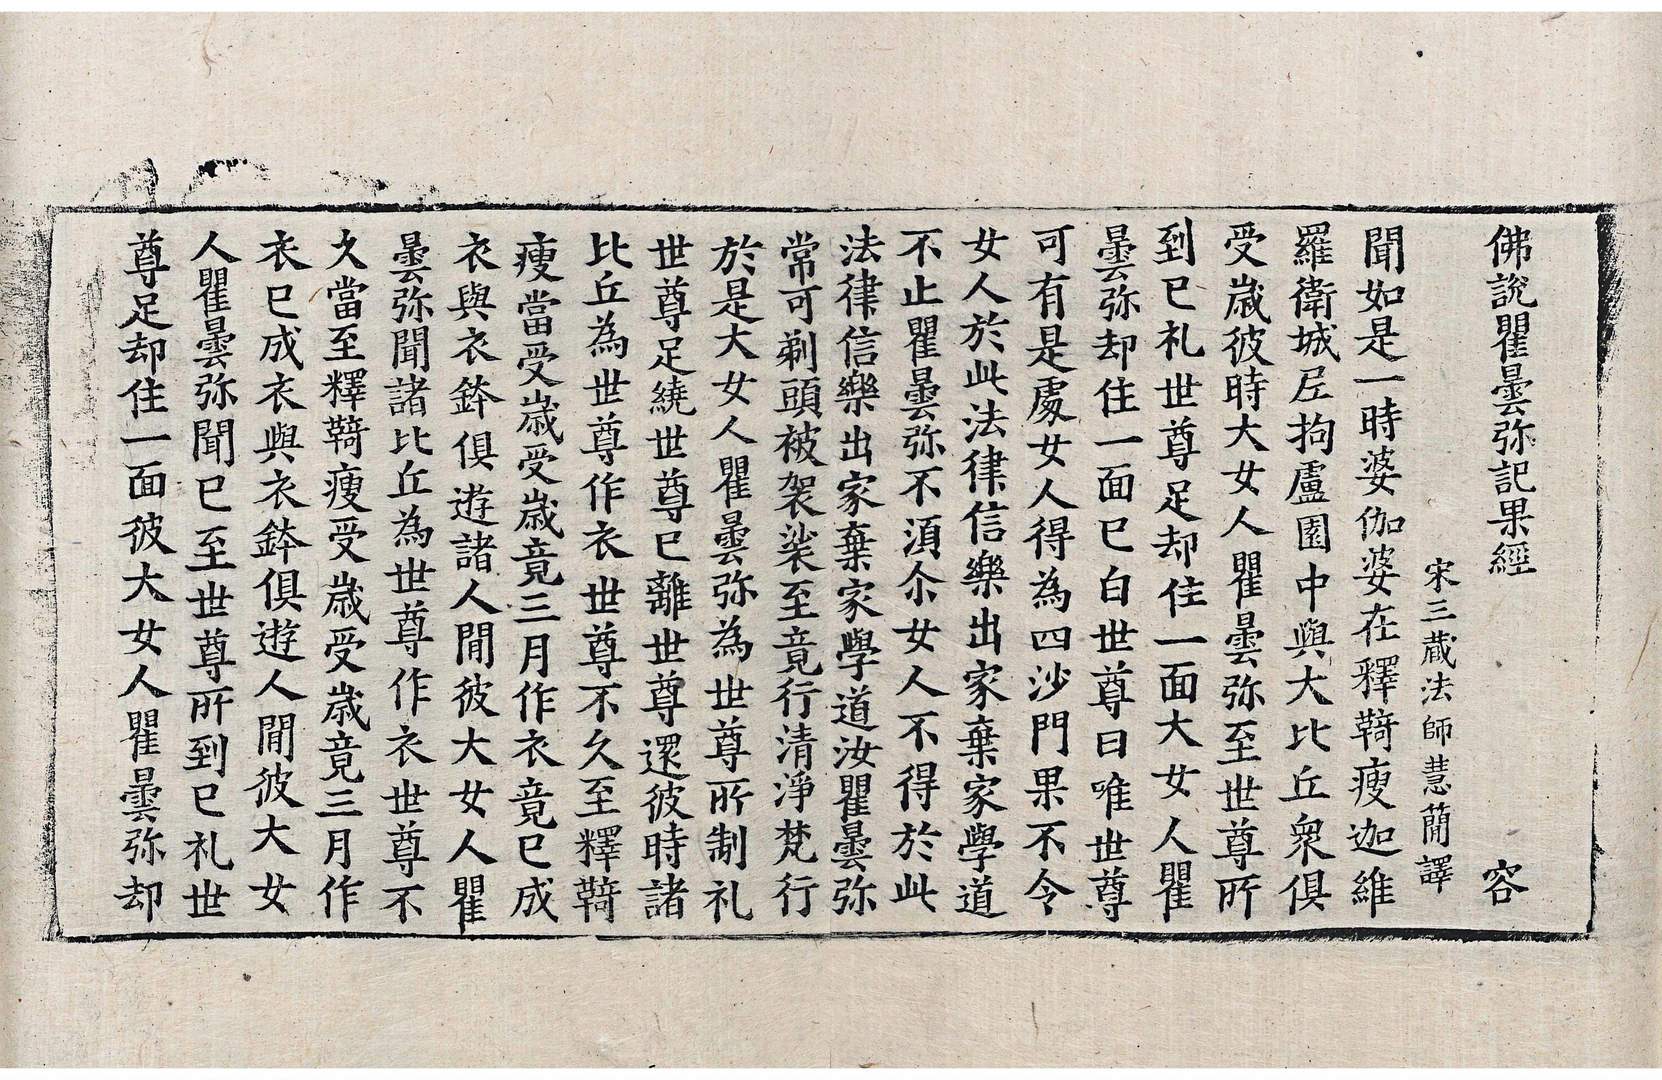 佛說瞿曇弥記果經 容
宋三藏法師慧簡譯
聞如是一時婆伽婆在釋鞫瘦迦維
羅衛城尼拘盧園中與大比丘衆俱
受歳彼時大女人瞿曇弥至世尊所
到已礼世尊足却住一面大女人瞿
曇弥却住一面已白世尊曰唯世尊
可有是處女人得為四沙門果不令
女人於此法律信樂出家棄家學道
不止瞿曇弥不湏尒女人不得於此
法律信樂出家棄家學道汝瞿曇弥
常可剃頭被袈裟至竟行清淨梵行
於是大女人瞿曇弥為世尊所制礼
世尊足繞世尊已離世尊還彼時諸
比丘為世尊作衣世尊不久至釋鞫
瘦當受歳受歳竟三月作衣竟已成
衣與衣鉢俱遊諸人閒彼大女人瞿
曇弥聞諸比丘為世尊作衣世尊不
久當至釋鞫瘦受歳受歳竟三月作
衣已成衣與衣鉢俱遊人閒彼大女
人瞿曇弥聞已至世尊所到已礼世
尊足却住一面彼大女人瞿曇弥却